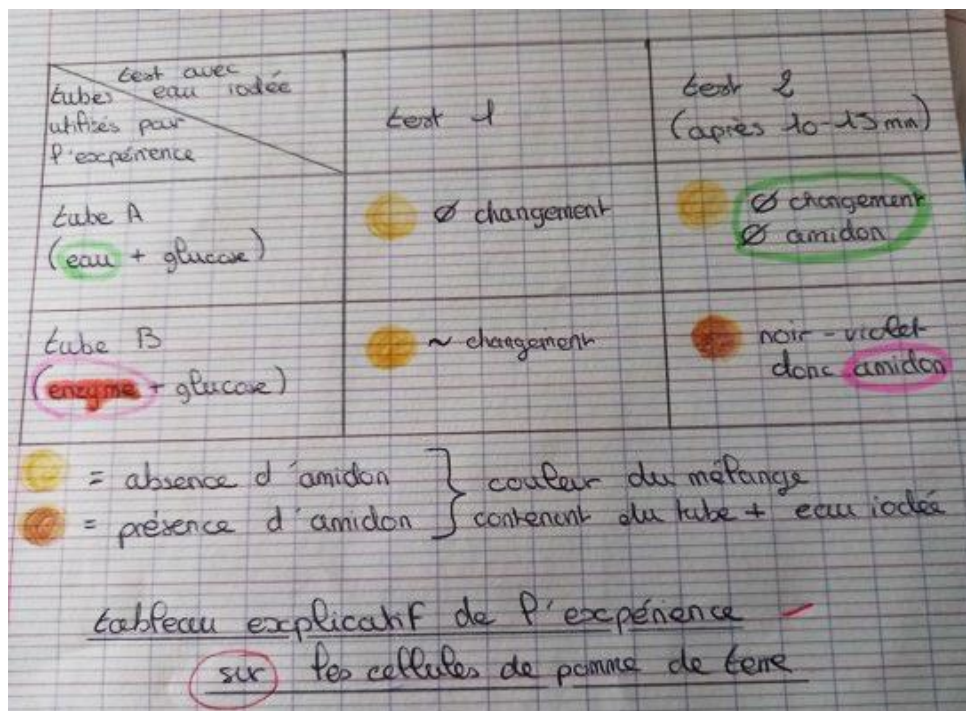 test avec
tubes eau iodée
utilisés pour
l'expérience
test 1
test 2
(après 10-15 mm)
tube A
(eau + glucose)
Ø changement
Ø changement
Ø amidon
tube B
(enzyme + glucose)
~ changement
noir-violet
donc amidon
= absence d'amidon
= présence d'amidon
} couleur du mélange
contenant du tube + eau iodée
tableau explicatif de l'expérience
sur les cellules de pomme de terre